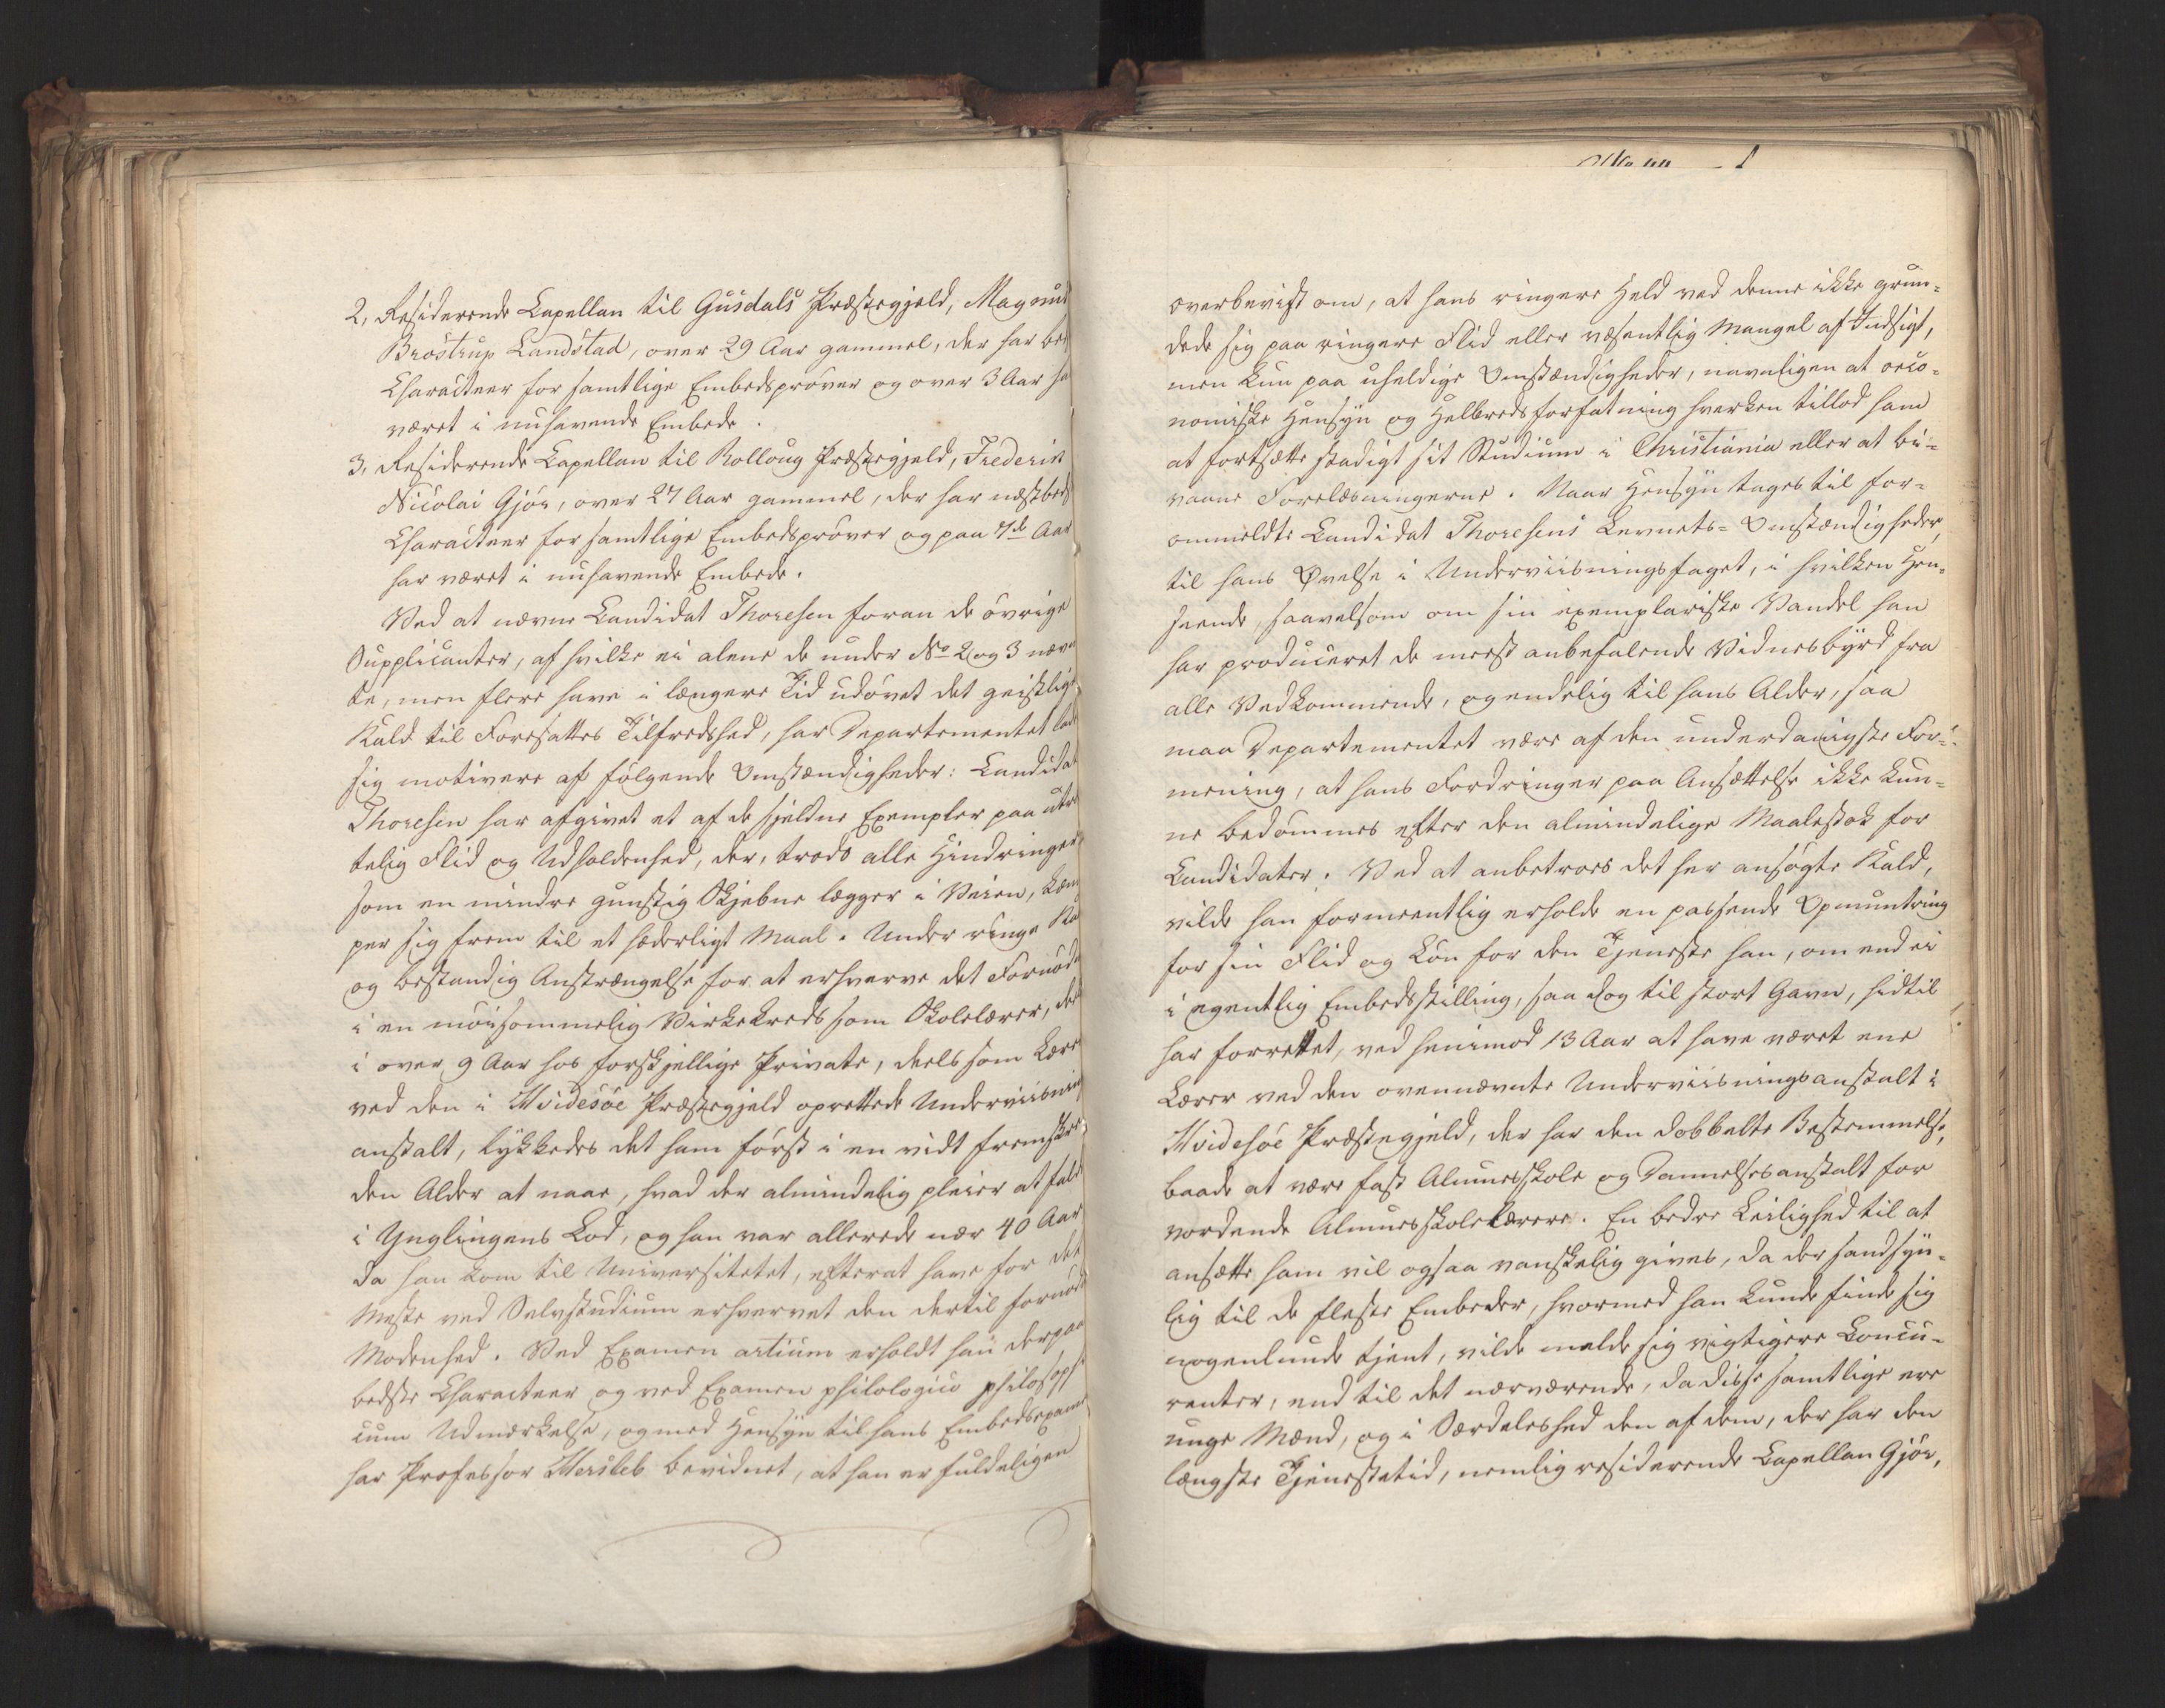 2, Residerende Capellan til Gusdals Præstegjeld, Magnus
Brostrup Landstad, over 29 Aar gammel, der har bed
Characteer for samtlige Embedsprøver og over 3 Aar ha
været i nuhavende Embede.
3, Residerende Capellan til Rolloug Præstegjeld, Frederik
Nicolai Gjör, over 27 Aar gammel, der har næstbeds
Characteer for samtlige Embedsprøver og paa 4de Aar
har været i nuhavende Embede.
Ved at nævne Candidat Thoresen foran de övrige
Supplicanter, af hvilke ei alene de under No 2 og 3 nævn
te, men flere have i længere Tid udövet det geistlige
Kald til Foresattes Tilfredshed, har Departementet lad
sig motivere af fölgende Omstændigheder: Candidat
Thoresen har afgivet et af de sjeldne Exempler paa utræt
telig Flid og Udholdenhed, der, trods alle Hindringer,
som en mindre gunstig Skjebne lægger i Veien, kæm
per sig frem til et hæderligt Maal. Under ringe Kaa
og bestandig Anstrængelse for at erhverve det Fornödn
i en möisommelig Virkekreds som Skolelærer, deel
i over 9 Aar hos forskjellige Private, deels som Lærer
ved den i Hvidesöe Præstegjeld oprettede Underviisnings
anstalt, lykkedes det ham först i en vidt fremskre
den Alder at naae, hvad der almindelig pleier at falde
i Ynglingens Lod, og han var allerede nær 40 Aar
da han kom til Universitetet, efterat have for det
Meste ved Selvstudium erhvervet den dertil fornöd
Modenhed. Ved Examen artium erholdt han derpaa
bedste Characteer og ved Examen philologico philosophi
cum Udmærkelse, og med Hensyn til hans Embedsexame
har Professor Hersleb bevidnet, at han er fuldeligen
overbeviist om, at hans ringere Held ved denne ikke grun-
dede sig paa ringere Flid eller væsentlig Mangel af Indsigt,
men kun paa uheldige Omstændigheder, navnligen at oeco-
nomiske Hensyn og Helbredsforfatning hverken tillod ham
at fortsætte stadigt sit Studium i Christiania eller at bi-
vaane Forelæsningerne. Naar Hensyn tages til for-
ommeldte Candidat Thoresens Levnets-Omstændigheder,
til hans Øvelse i Underviisningsfaget, i hvilken Hen-
seende, saavelsom om sin exemplariske Vandel han
har produceret de meest anbefalende Vidnesbyrd fra
alle Vedkommende, og endelig til hans Alder, saa
maa Departementet være af den underdanigste For-
mening, at hans Fordringer paa Ansættelse ikke kun-
ne bedömmes efter den almindelige Maalestok for
Candidater. Ved at anbetroes det her ansögte Kald,
vilde han formeentlig erholde en passende Opmuntring
for sin Flid og Lön for den Tjeneste han, om end ei
i egentlig Embedsstilling, saa dog til stort Gavn, hidtil
har forrettet, ved henimod 13 Aar at have været ene
Lærer ved den ovennævnte Underviisningsanstalt i
Hvidesöe Præstegjeld, der har den dobbelte Bestemmelse,
baade at være fast Almueskole og Dannelsesanstalt for
vordende Almueskolelærere. En bedre Leilighed til at
ansætte ham vil ogsaa vanskelig gives, da der sandsyn-
lig til de fleste Embeder, hvormed han kunde finde sig
nogenlunde tjent, vilde melde sig vigtigere Concu-
renter, end til det nærværende, da disse samtlige ere
unge Mænd, og i Særdeleshed den af dem, der har den
længste Tjenestetid, nemlig residerende Capellan Gjör,